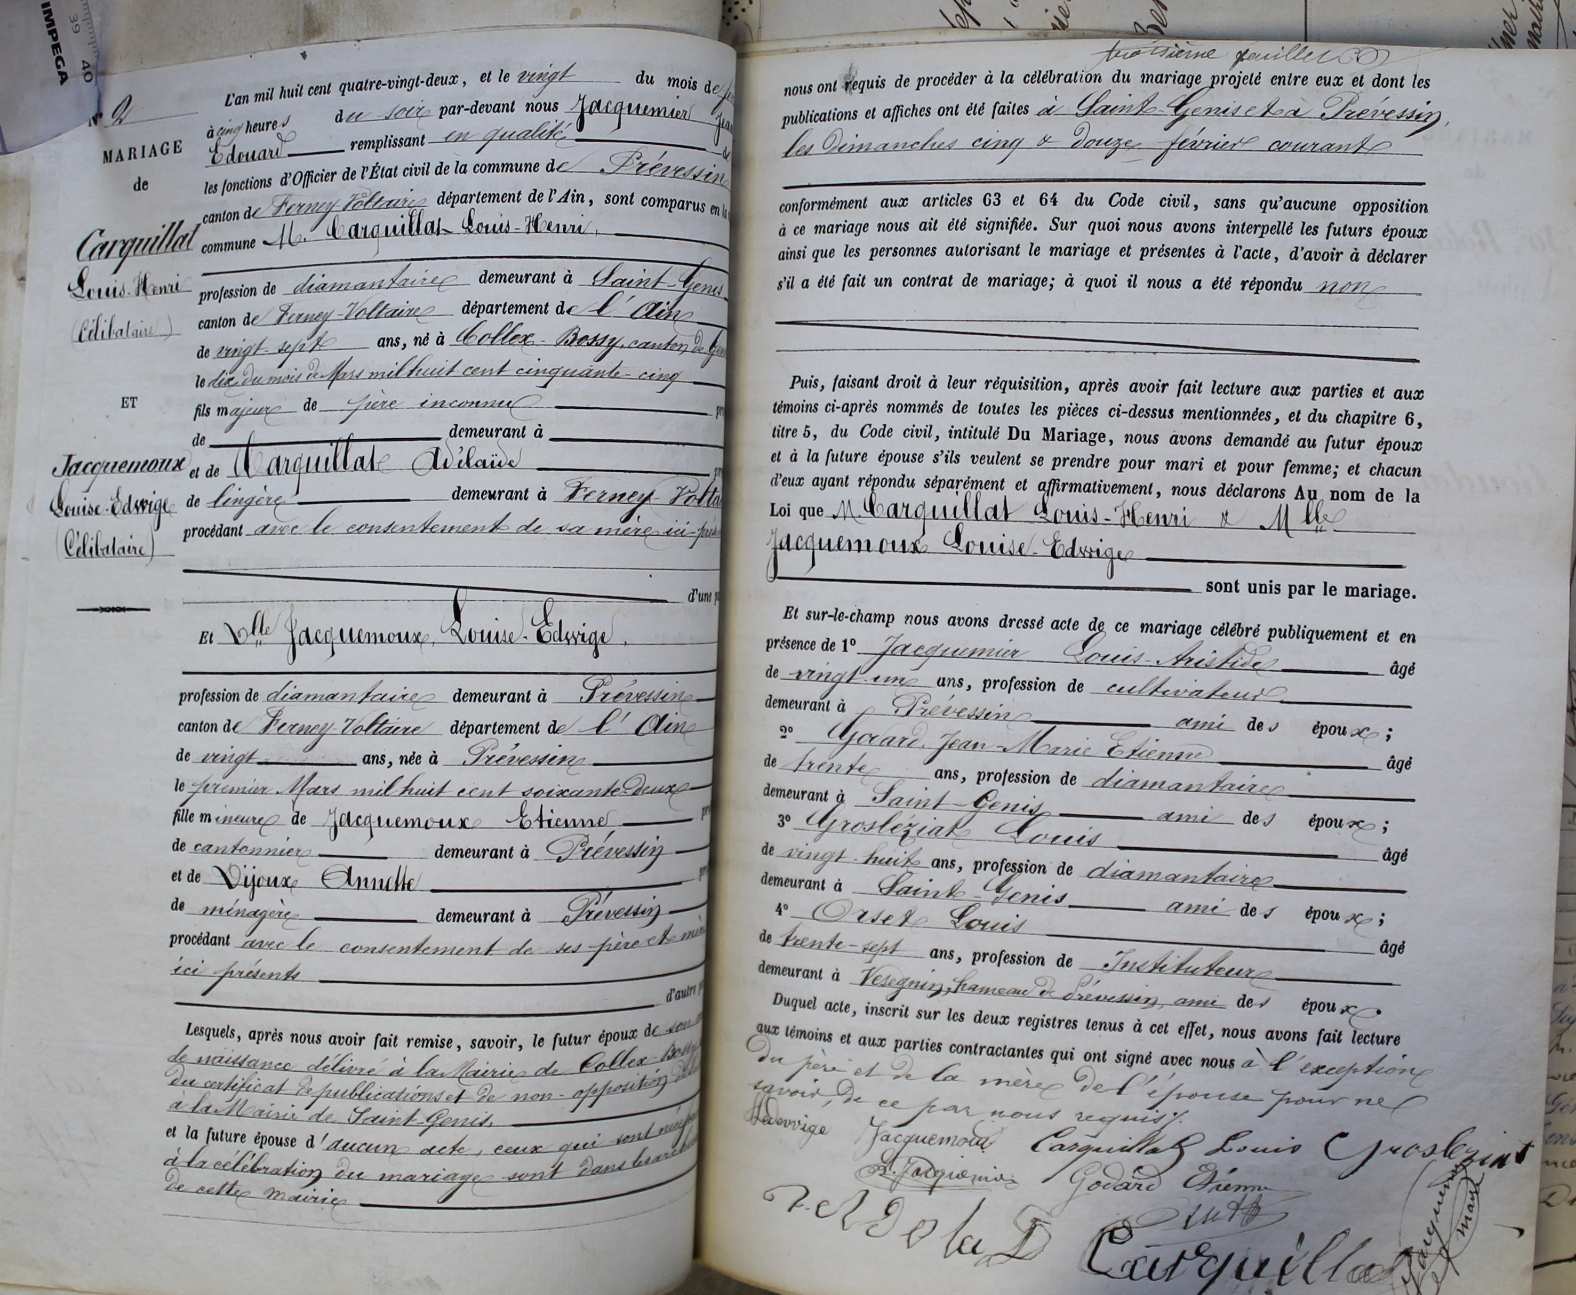 IMPEGA
39 40
N° 2
MARIAGE
de
Carquillat
Louis-Henri
(Célibataire)
ET
Jacquemoux
Louise-Edwige
(Célibataire)
L'an mil huit cent quatre-vingt-deux, et le vingt du mois de
à cinq heures du soir par-devant nous Jacquemier
Edouard remplissant en qualité
les fonctions d'Officier de l'État civil de la commune de Prévessin
canton de Ferney-Voltaire département de l'Ain, sont comparus en la
commune M. Carquillat Louis-Henri,
profession de diamantaire demeurant à Saint-Genis
canton de Ferney-Voltaire département de l'Ain
de vingt-sept ans, né à Collex-Bossy, canton de
le dix du mois de Mars mil huit cent cinquante-cinq
fils majeur de père inconnu
de demeurant à
et de Carquillat Adélaïde
de lingère demeurant à Ferney
procédant avec le consentement de sa mère ici
d'une
Et Dlle Jacquemoux, Louise-Edwige,
profession de diamantaire demeurant à Prévessin
canton de Ferney-Voltaire département de l'Ain
de vingt ans, née à Prévessin
le premier Mars mil huit cent soixante-deux
fille mineure de Jacquemoux Etienne
de cantonnier demeurant à Prévessin
et de Dijoux Annette
de ménagère demeurant à Prévessin
procédant avec le consentement de ses père et
ici présents
d'autre
Lesquels, après nous avoir fait remise, savoir, le futur époux de son
de naissance délivré à la Mairie de Collex-Bossy
du certificat de publications et de non-opposition
à la Mairie de Saint-Genis,
et la future épouse d'aucun acte, ceux qui sont
à la célébration du mariage sont dans les
de cette mairie
troisième feuillet
nous ont requis de procéder à la célébration du mariage projeté entre eux et dont les
publications et affiches ont été faites à Saint-Genis et à Prévessin,
les dimanches cinq & douze février courant
conformément aux articles 63 et 64 du Code civil, sans qu'aucune opposition
à ce mariage nous ait été signifiée. Sur quoi nous avons interpellé les futurs époux
ainsi que les personnes autorisant le mariage et présentes à l'acte, d'avoir à déclarer
s'il a été fait un contrat de mariage; à quoi il nous a été répondu non
Puis, faisant droit à leur réquisition, après avoir fait lecture aux parties et aux
témoins ci-après nommés de toutes les pièces ci-dessus mentionnées, et du chapitre 6,
titre 5, du Code civil, intitulé Du Mariage, nous avons demandé au futur époux
et à la future épouse s'ils veulent se prendre pour mari et pour femme; et chacun
d'eux ayant répondu séparément et affirmativement, nous déclarons Au nom de la
Loi que M. Carquillat Louis-Henri & Mlle
Jacquemoux Louise-Edwige
sont unis par le mariage.
Et sur-le-champ nous avons dressé acte de ce mariage célébré publiquement et en
présence de 1° Jacquemier Louis-Aristide âgé
de vingt un ans, profession de cultivateur
demeurant à Prévessin ami des époux;
2° Godard Jean-Marie Etienne âgé
de trente ans, profession de diamantaire
demeurant à Saint-Genis ami des époux;
3° Grosléziat Louis âgé
de vingt huit ans, profession de diamantaire
demeurant à Saint-Genis ami des époux;
4° Orset Louis âgé
de trente-sept ans, profession de Instituteur
demeurant à Vésegnin, hameau de Prévessin, ami des époux.
Duquel acte, inscrit sur les deux registres tenus à cet effet, nous avons fait lecture
aux témoins et aux parties contractantes qui ont signé avec nous à l'exception
du père et de la mère de l'épouse pour ne
savoir, de ce par nous requis.
Jacquemoux Carquillat Louis Grosleziat
Godard Etienne
Carquillat
Jacquemier
maire